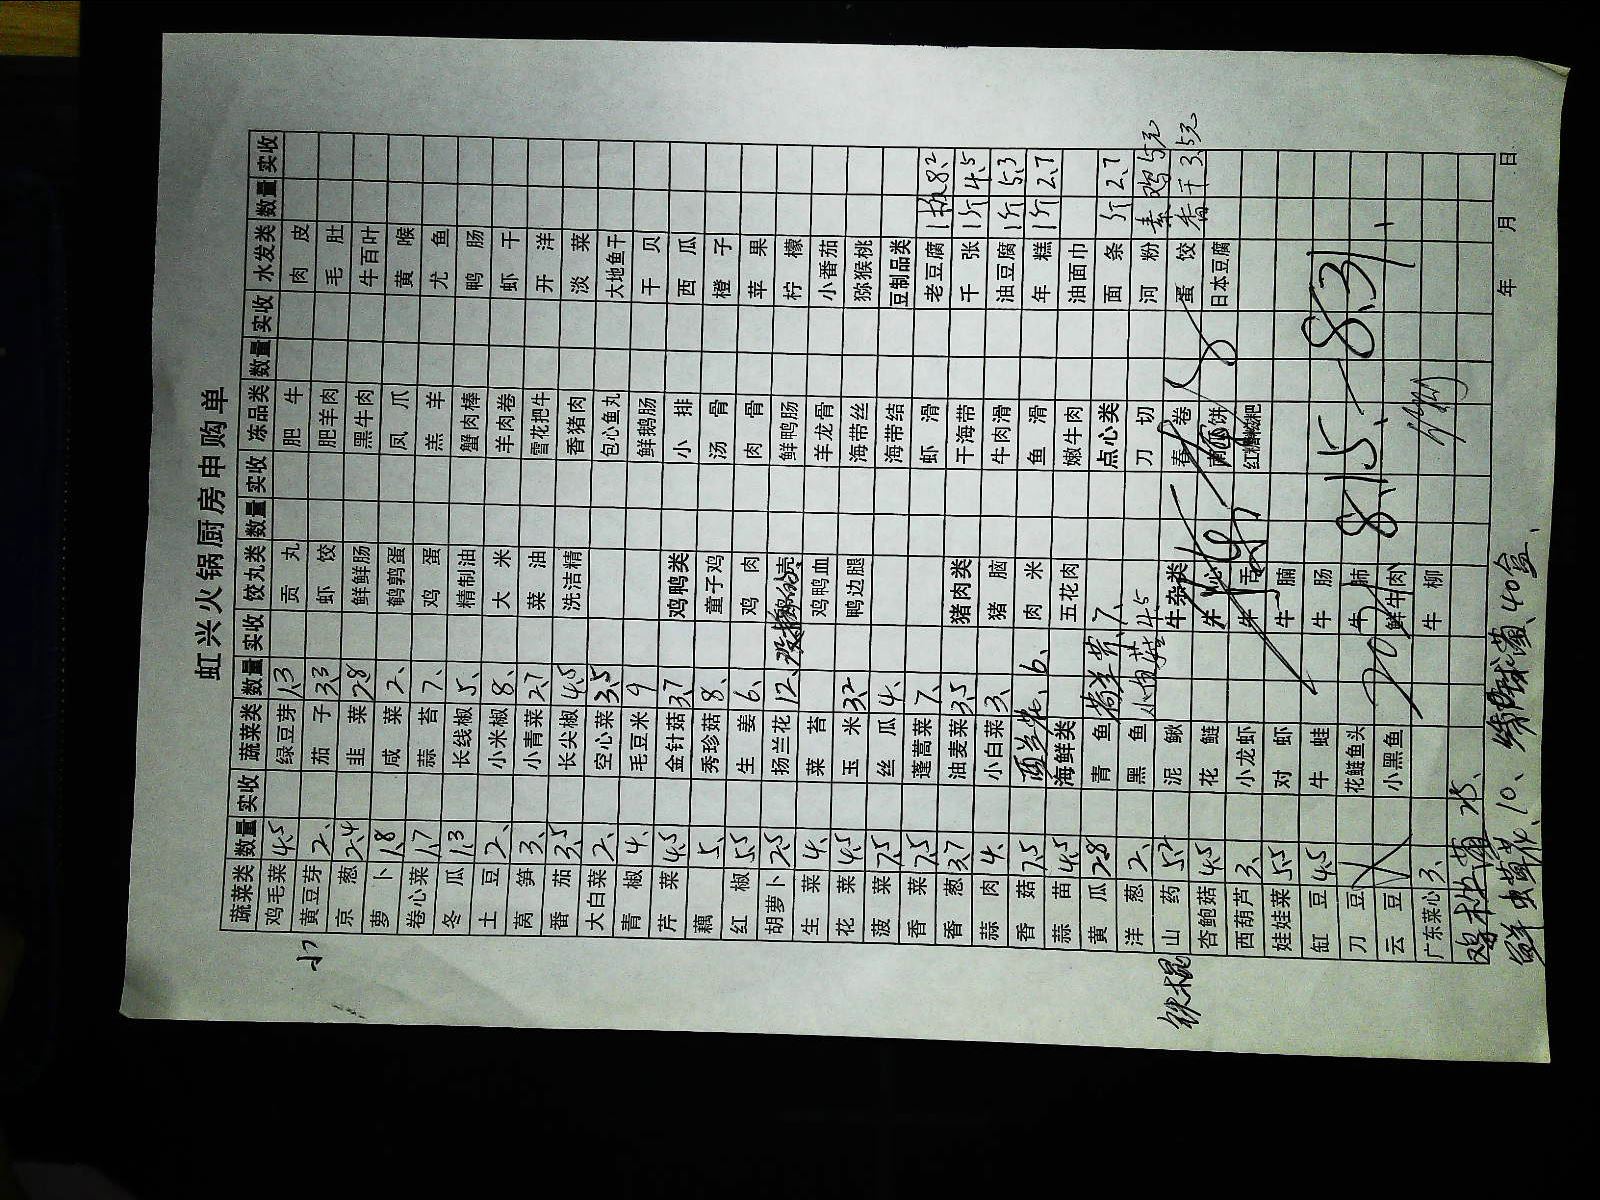 虹兴火锅厨房申购单
蔬菜类 数量 实收 蔬菜类 数量 实收 饺丸类 数量 实收 冻品类 数量 实收 水发类 数量 实收
鸡毛菜 4.5 绿豆芽 1.3 贡丸 肥牛 肉皮
小 黄豆芽 2、 茄子 3.3 虾饺 肥羊肉 毛肚
京葱 2.4 韭菜 2.8 鲜鲜肠 黑牛肉 牛百叶
萝卜 1.8 咸菜 2、 鹌鹑蛋 凤爪 黄喉
卷心菜 1.7 蒜苔 7、 鸡蛋 羔羊 尤鱼
冬瓜 1.3 长线椒 5、 精制油 蟹肉棒 鸭肠
土豆 2、 小米椒 8、 大米 羊肉卷 虾干
莴笋 3、 小青菜 2.7 菜油 雪花把牛 开洋
番茄 3.5 长尖椒 4.5 洗洁精 香猪肉 淡菜
大白菜 2、 空心菜 3.5 包心鱼丸 大地鱼干
青椒 4、 毛豆米 9 鲜鹅肠 干贝
芹菜 4.5 金针菇 3.7 鸡鸭类 小排 西瓜
藕 5、 秀珍菇 8、 童子鸡 汤骨 橙子
红椒 5.5 生姜 6、 鸡肉 肉骨 苹果
胡萝卜 2.5 扬兰花 12、 鲜鸭肠 柠檬
生菜 4、 菜苔 鸡鸭血 羊龙骨 小番茄
花菜 4.5 玉米 3.2 鸭边腿 海带丝 猕猴桃
菠菜 7.5 丝瓜 4、 海带结 豆制品类
香菜 7.5 蓬蒿菜 7、 虾滑 老豆腐 1板 8.2
香葱 3.7 油麦菜 3.5 猪肉类 干海带 千张 1斤 4.5
蒜肉 4、 小白菜 3、 猪脑 牛肉滑 油豆腐 1斤 5.3
香菇 7.5 西兰花 6、 肉米 鱼滑 年糕 1斤 2.7
蒜苗 4.5 海鲜类 五花肉 嫩牛肉 油面巾
黄瓜 2.8 青鱼 7、 点心类 面条 1斤 2.7
洋葱 2、 黑鱼 4.5 刀切 河粉 素鸡 5元
铁棍 山药 5.2 泥鳅 牛杂类 春卷 蛋饺 香干 3.5元
杏鲍菇 4.5 花鲢 南瓜饼 日本豆腐
西葫芦 3、 小龙虾 红糖糍粑
娃娃菜 5.5 对虾 牛腩
缸豆 4.5 牛蛙 牛肠
刀豆 花鲢鱼头 牛肺
云豆 小黑鱼 鲜牛肉
广东菜心 3、 牛柳
8.15.—8.31
年 月 日
鲜虫草花、10、 40盒、